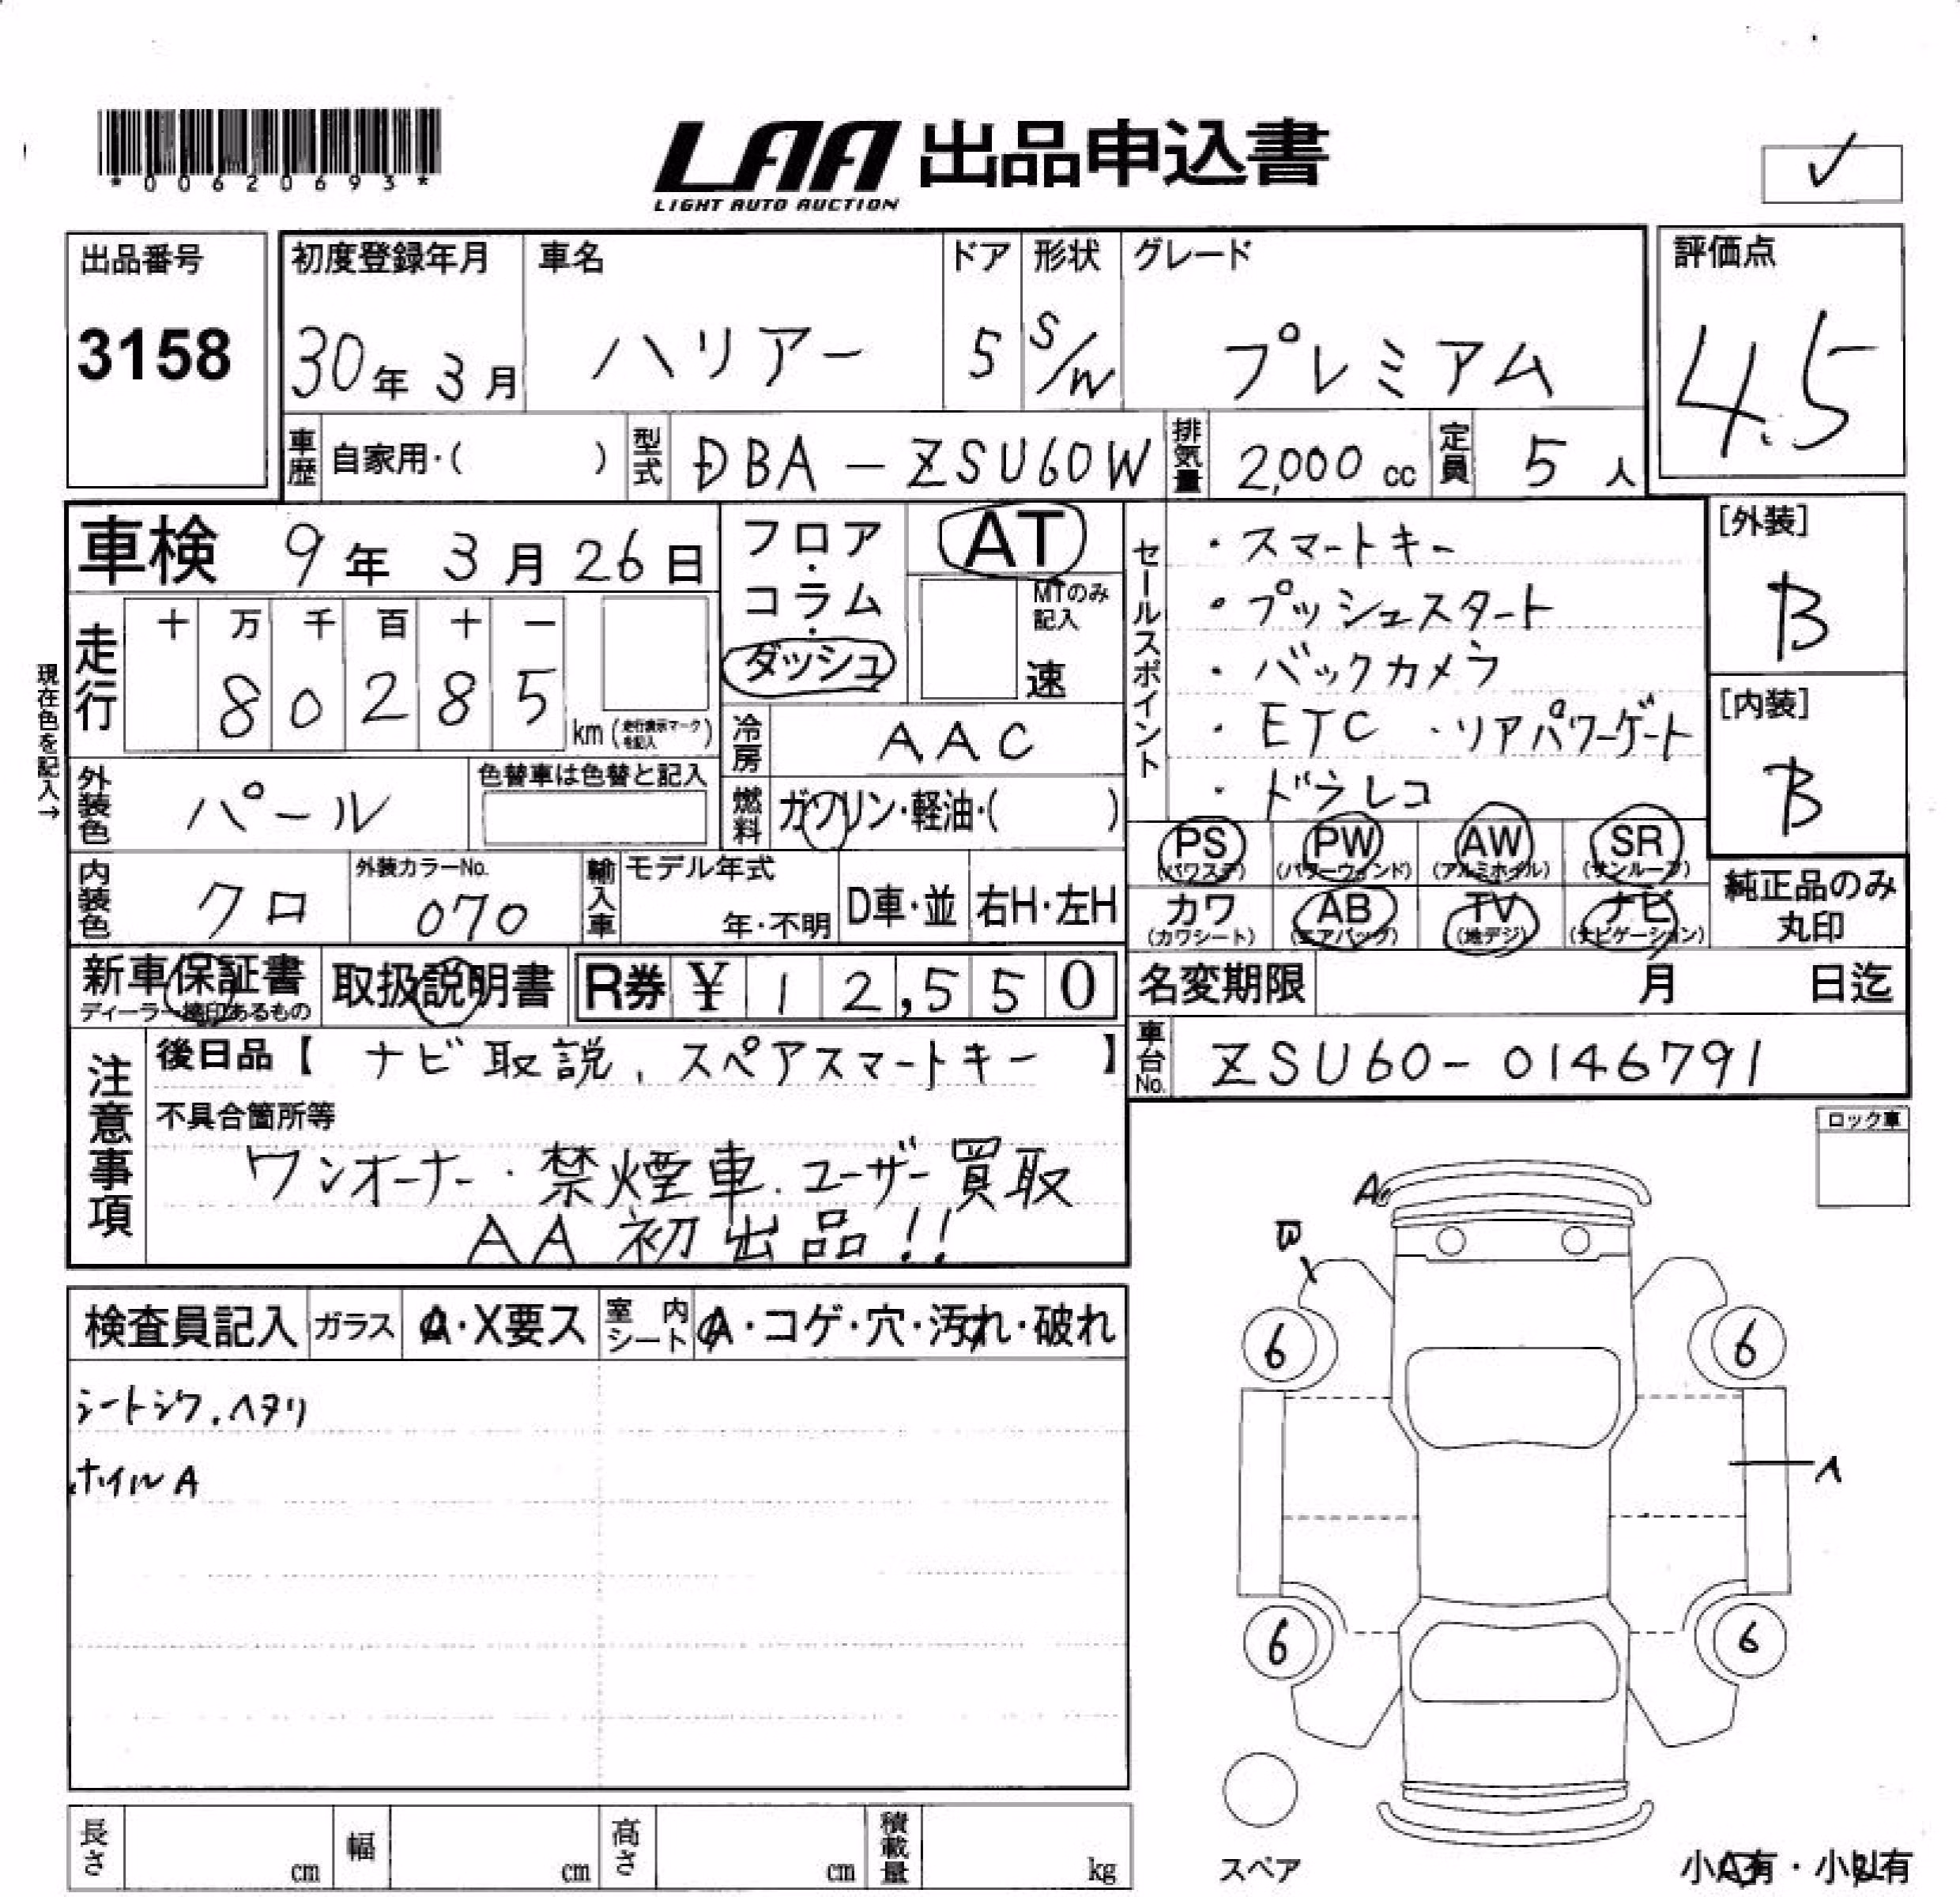 *00620693*
LAA 出品申込書
LIGHT AUTO AUCTION
✓
出品番号
3158
初度登録年月 車名 ドア 形状 グレード
30年 3月 ハリアー 5 S/W プレミアム
評価点
4.5
車歴 自家用・( ) 型式 DBA-ZSU60W 排気量 2,000 cc 定員 5 人
車検 9年 3月 26日
フロア・コラム・ダッシュ
AT
MTのみ記入
速
セールスポイント
・スマートキー
・プッシュスタート
・バックカメラ
・ETC ・リアパワーゲート
・ドラレコ
[外装]
B
[内装]
B
現在色を記入→
走行 十 万 千 百 十 一
8 0 2 8 5 km (走行表示マークを記入)
冷房 AAC
外装色 パール 色替車は色替と記入
燃料 ガソリン・軽油・( )
PS (パワステ) PW (パワーウィンド) AW (アルミホイル) SR (サンルーフ)
カワ (カワシート) AB (エアバッグ) TV (地デジ) ナビ (ナビゲーション)
純正品のみ丸印
内装色 クロ 外装カラーNo. 070 輸入車 モデル年式 年・不明 D車・並 右H・左H
新車保証書 ディーラー捺印あるもの 取扱説明書 R券 ¥ 12,550
名変期限 月 日迄
車台No. ZSU60-0146791
注意事項
後日品【 ナビ取説、スペアスマートキー 】
不具合箇所等
ワンオーナー・禁煙車.ユーザー買取
AA初出品!!
ロック車
検査員記入 ガラス A・X要ス 室内シート A・コゲ・穴・汚れ・破れ
シートシワ.ヘタリ
ホイルA
A
6 6
A
6 6
スペア
小A有・小U有
長さ cm 幅 cm 高さ cm 積載量 kg